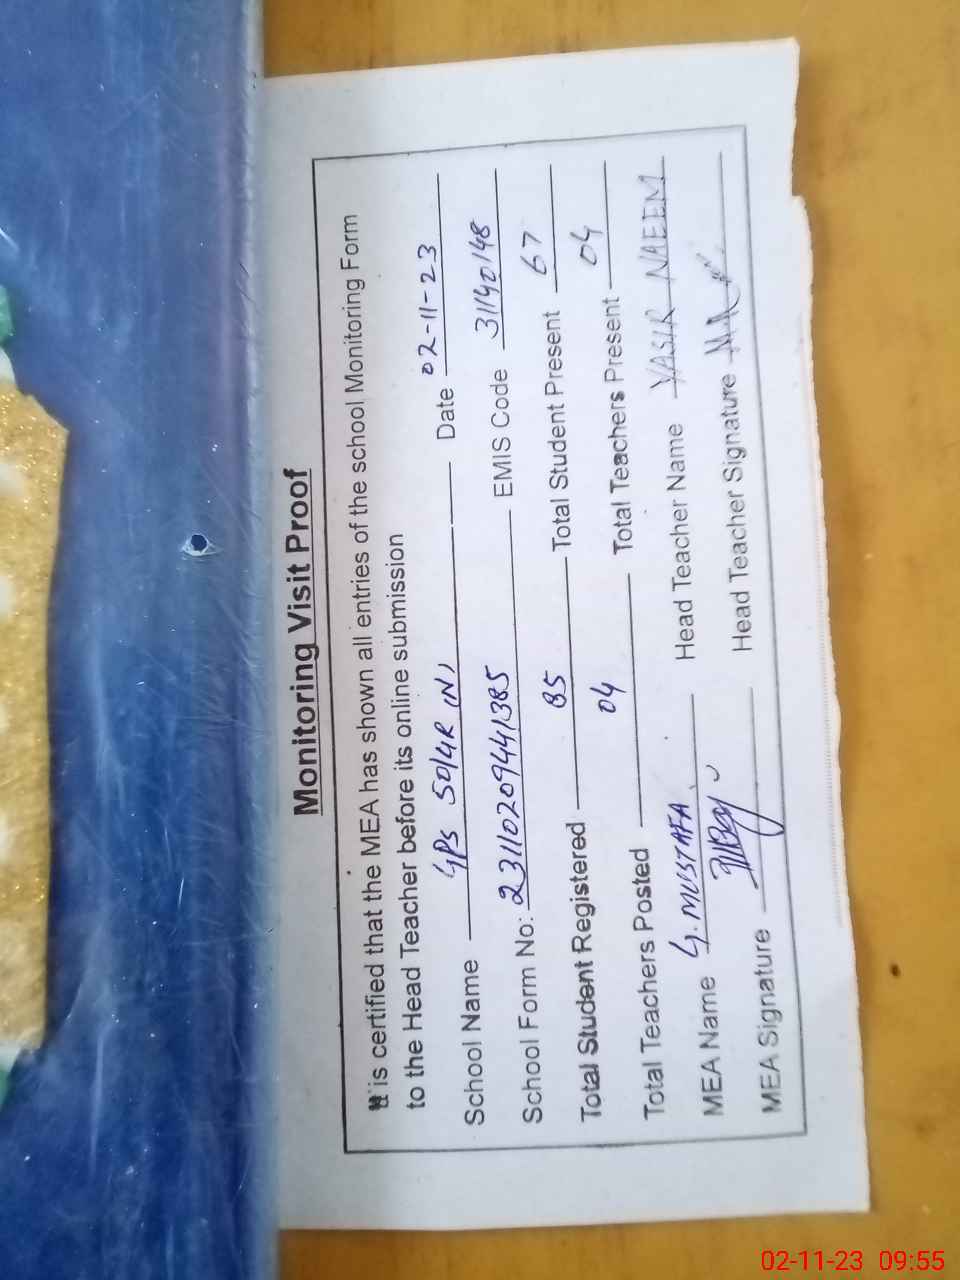 Monitoring Visit Proof
It is certified that the MEA has shown all entries of the school Monitoring Form
to the Head Teacher before its online submission
School Name GPS SOLAR (N) Date 02-11-23
School Form No: 231102094441385 EMIS Code 31140148
Total Student Registered 85 Total Student Present 67
Total Teachers Posted 04 Total Teachers Present 04
MEA Name G. MUSTAFA Head Teacher Name YASIR NAEEM
MEA Signature Head Teacher Signature
02-11-23 09:55